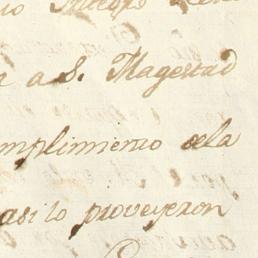 a a S. Magestad
mplimiento dela
asi lo proveyeron